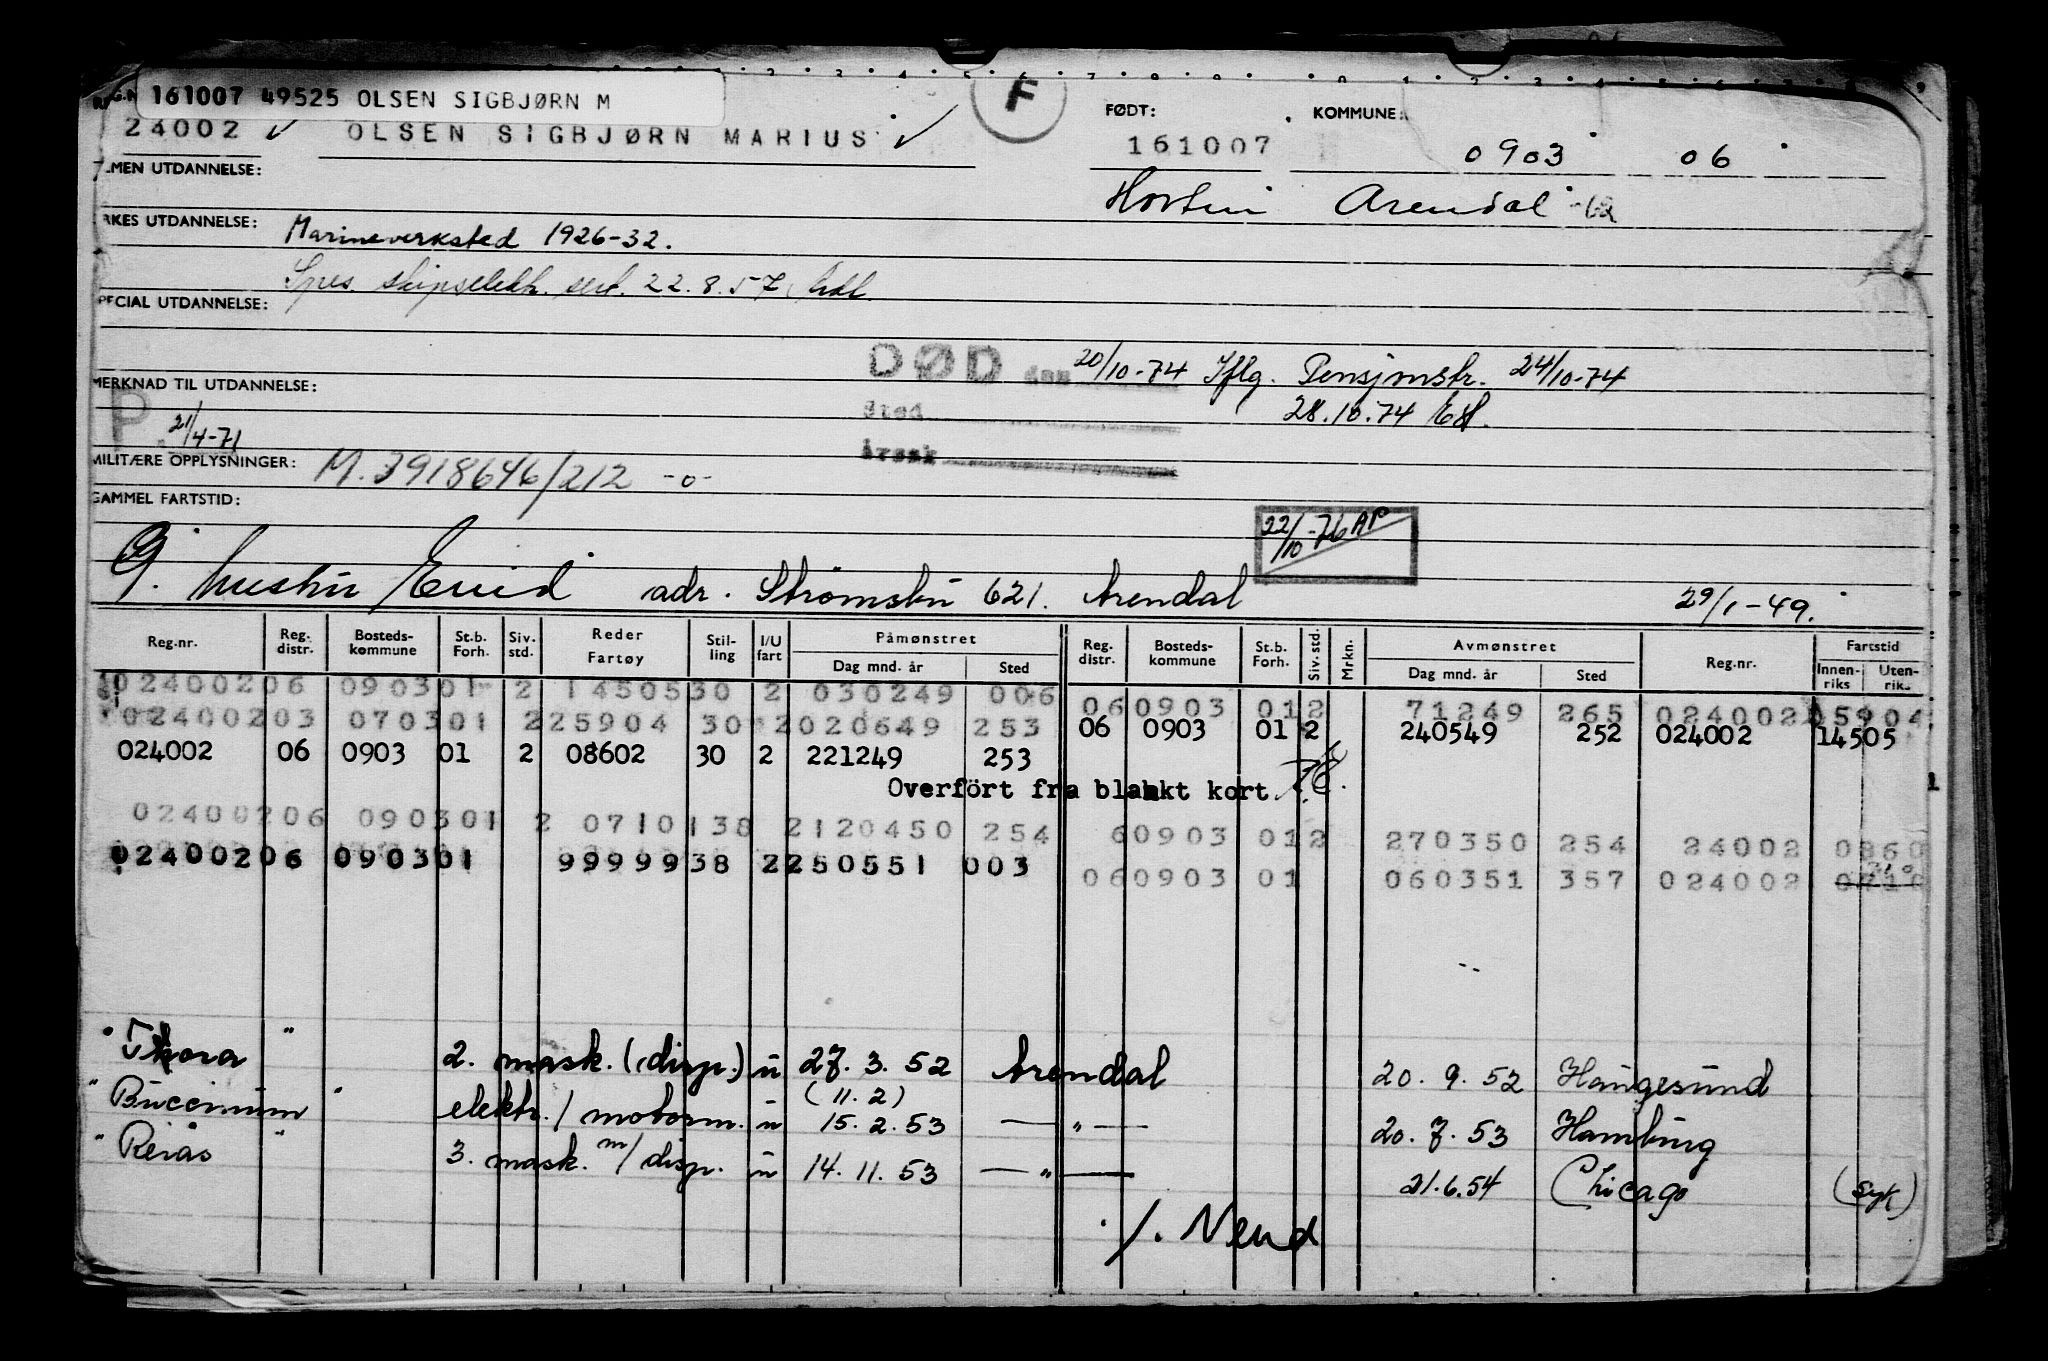 161007 49525 OLSEN SIGBJØRN M
F
FØDT:
KOMMUNE:
24002 ✓ OLSEN SIGBJØRN MARIUS ✓
161007 0903 06
LMEN UTDANNELSE:
Horten Arendal -62
RKES UTDANNELSE: Marineverksted 1926-32.
Spes. skipselektr. sert. 22.8.57
PECIAL UTDANNELSE:
DØD den 20/10-74 Iflg. Pensjonstr. 24/10-74
MERKNAD TIL UTDANNELSE:
Sted 28.10.74
P. 21/4-71
Årsak
MILITÆRE OPPLYSNINGER: M.3918646/212 -o-
GAMMEL FARTSTID:
22/10-76 AP
G. hustru adr. Strømsbu 621. Arendal 29/1-49.
Reg.nr. Reg. distr. Bosteds-kommune St.b. Forh. Siv. std. Reder Fartøy Stil-ling I/U fart Påmønstret Dag mnd. år Sted Reg. distr. Bosteds-kommune St.b. Forh. Siv. std. Mrkn. Avmønstret Dag mnd. år Sted Reg.nr. Fartstid Innen-riks Uten-riks
02400206 090301 2 1450530 2 030249 006 060903 012 71249 265 024002 05904
02400203 070301 225904 30 2020649 253 06 0903 01 2 240549 252 024002 14505
024002 06 0903 01 2 08602 30 2 221249 253
Overført fra blankt kort.
02400206 090301 2 0710138 2120450 254 60903 012 270350 254 24002 0860
02400206 090301 9999938 2250551 003 060903 01 060351 357 024002 0710
" Thora " 2. mask. (disp.) u 27.3.52 Arendal 20.9.52 Haugesund
(11.2)
" Buccinum " elektr./motorm. u 15.2.53 — " — 20.7.53 Hamburg
" Reiås " 3. mask. m/disp. u 14.11.53 — " — 21.6.54 Chicago (syk)
./. Vend